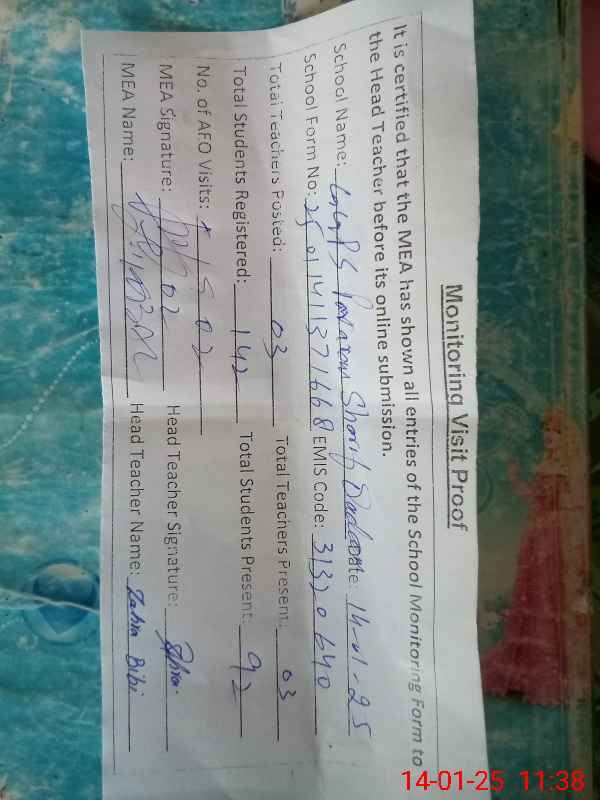 Monitoring Visit Proof
It is certified that the MEA has shown all entries of the School Monitoring Form to
the Head Teacher before its online submission.
School Name: GGPS Sharif Date: 14-01-25
School Form No: 25011411371668 EMIS Code: 31320640
Total Teachers Posted: 03 Total Teachers Present: 03
Total Students Registered: 142 Total Students Present: 92
No. of AFO Visits: 02
MEA Signature: Head Teacher Signature: Zahra
MEA Name: Head Teacher Name: Zahra Bibi
14-01-25 11:38